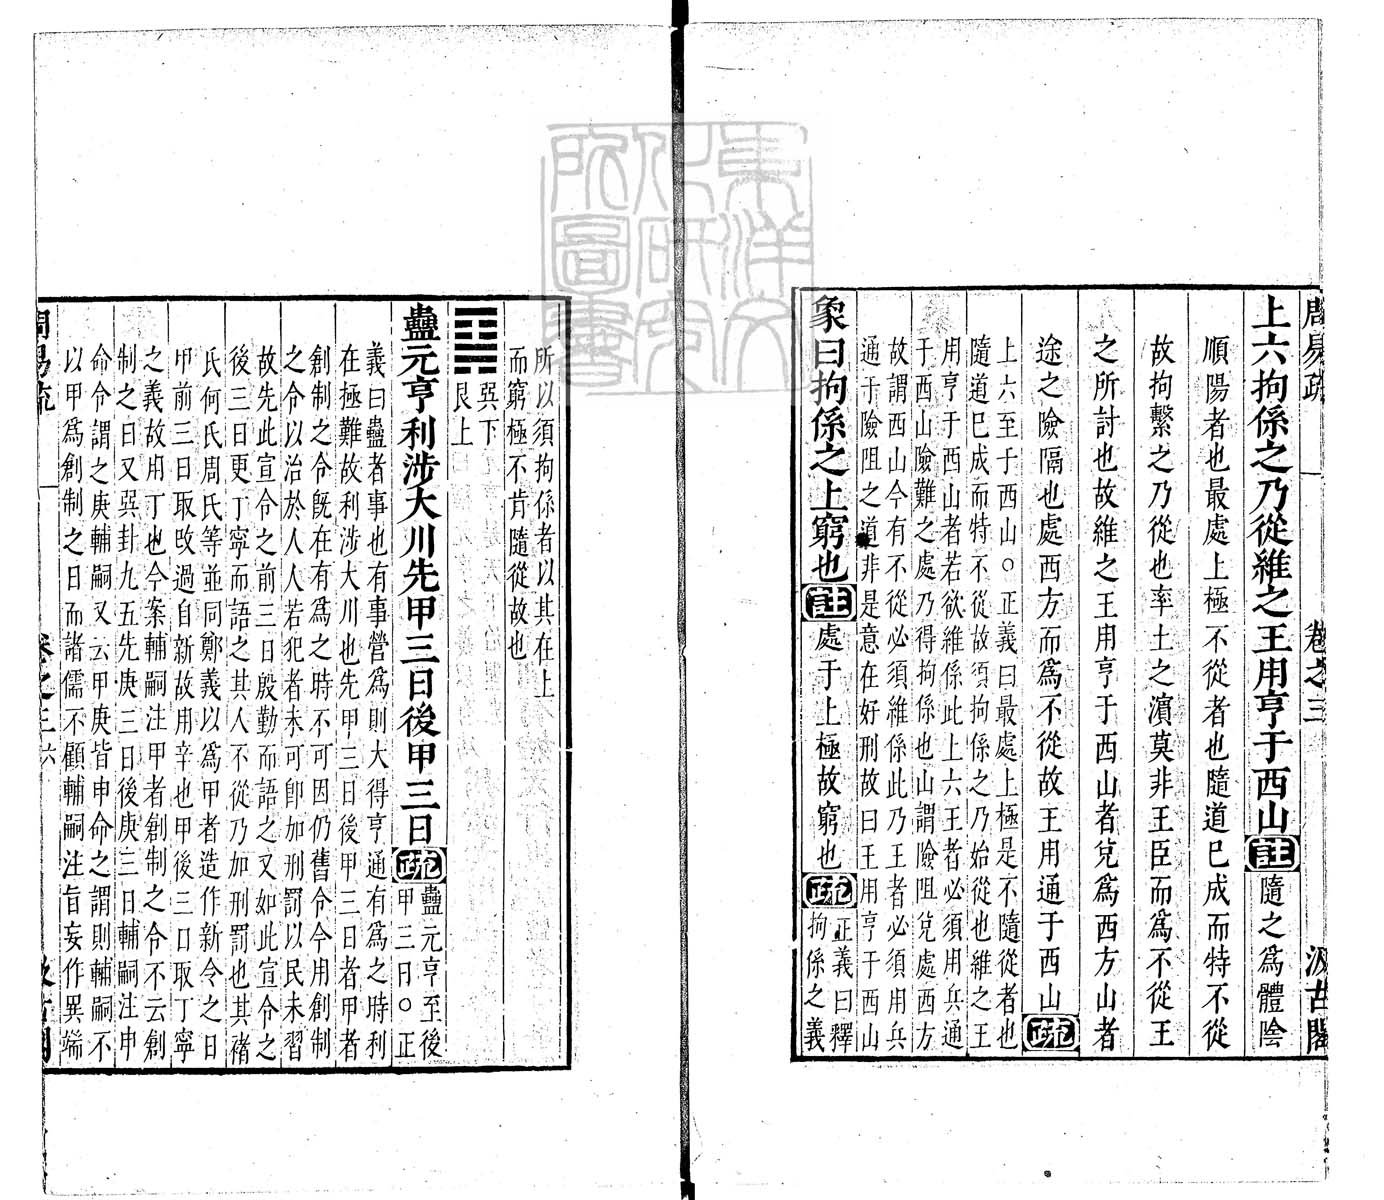 周易疏 卷之三 汲古閣
上六拘係之乃從維之王用亨于西山註隨之爲體陰
順陽者也最處上極不從者也隨道已成而特不從
故拘繫之乃從也率土之濱莫非王臣而爲不從王
之所討也故維之王用亨于西山者兌爲西方山者
途之險隔也處西方而爲不從故王用通于西山疏
上六至于西山○正義曰最處上極是不隨從者也
隨道已成而特不從故須拘係之乃始從也維之王
用亨于西山者若欲維係此上六王者必須用兵通
于西山險難之處乃得拘係也山謂險阻兌處西方
故謂西山今有不從必須維係此乃王者必須用兵
通于險阻之道非是意在好刑故曰王用亨于西山
象曰拘係之上窮也註處于上極故窮也疏
正義曰釋
拘係之義
所以須拘係者以其在上
而窮極不肯隨從故也
巽下
艮上
蠱元亨利涉大川先甲三日後甲三日疏
蠱元亨至後
甲三日○正
義曰蠱者事也有事營爲則大得亨通有爲之時利
在極難故利涉大川也先甲三日後甲三日者甲者
創制之令旣在有爲之時不可因仍舊令今用創制
之令以治於人人若犯者未可卽加刑罰以民未習
故先此宣令之前三日殷勤而語之又如此宣令之
後三日更丁寧而語之其人不從乃加刑罰也其褚
氏何氏周氏等並同鄭義以爲甲者造作新令之日
甲前三日取改過自新故用辛也甲後三日取丁寧
之義故用丁也今案輔嗣注甲者創制之令不云創
制之日又巽卦九五先庚三日後庚三日輔嗣注申
命令謂之庚輔嗣又云甲庚皆申命之謂則輔嗣不
以甲爲創制之日而諸儒不顧輔嗣注旨妄作異端
周易疏 卷之三 六 汲古閣
東洋文化研究所圖書